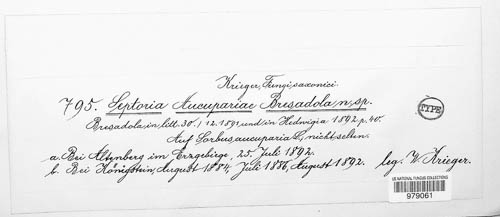 Krieger, Fungi saxonici.
795. Septoria Aucupariae Bresadola, n. sp.
TYPE
Bresadola, in litt. 30. 12. 1891, und in Hedwigia 1892 p. 40.
Auf Sorbus aucuparia L., nicht selten.
a. Bei Altenberg im Erzgebirge, 25. Juli 1892.
b. Bei Königstein, August 1884, Juli 1886, August 1892. leg. W. Krieger.
US NATIONAL FUNGUS COLLECTIONS
979061